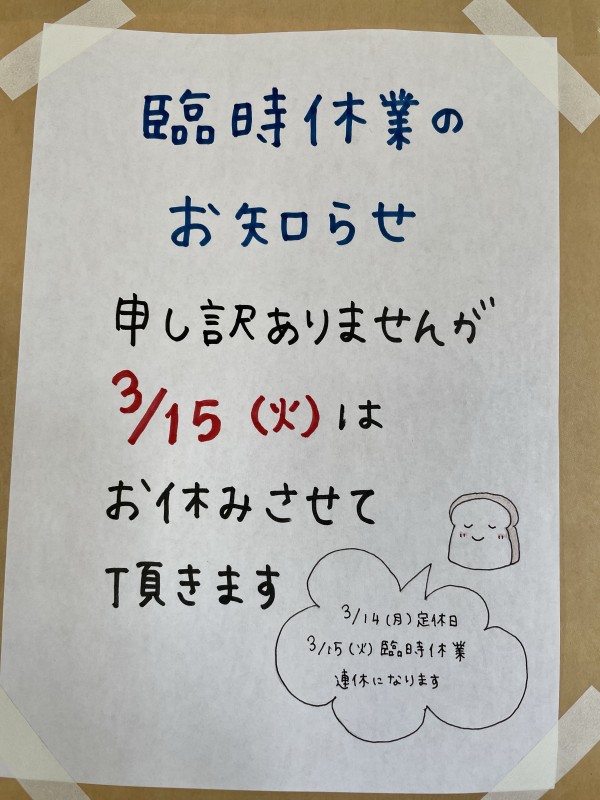 臨時休業の
お知らせ
申し訳ありませんが
3/15(火)は
お休みさせて
頂きます
3/14(月)定休日
3/15(火)臨時休業
連休になります